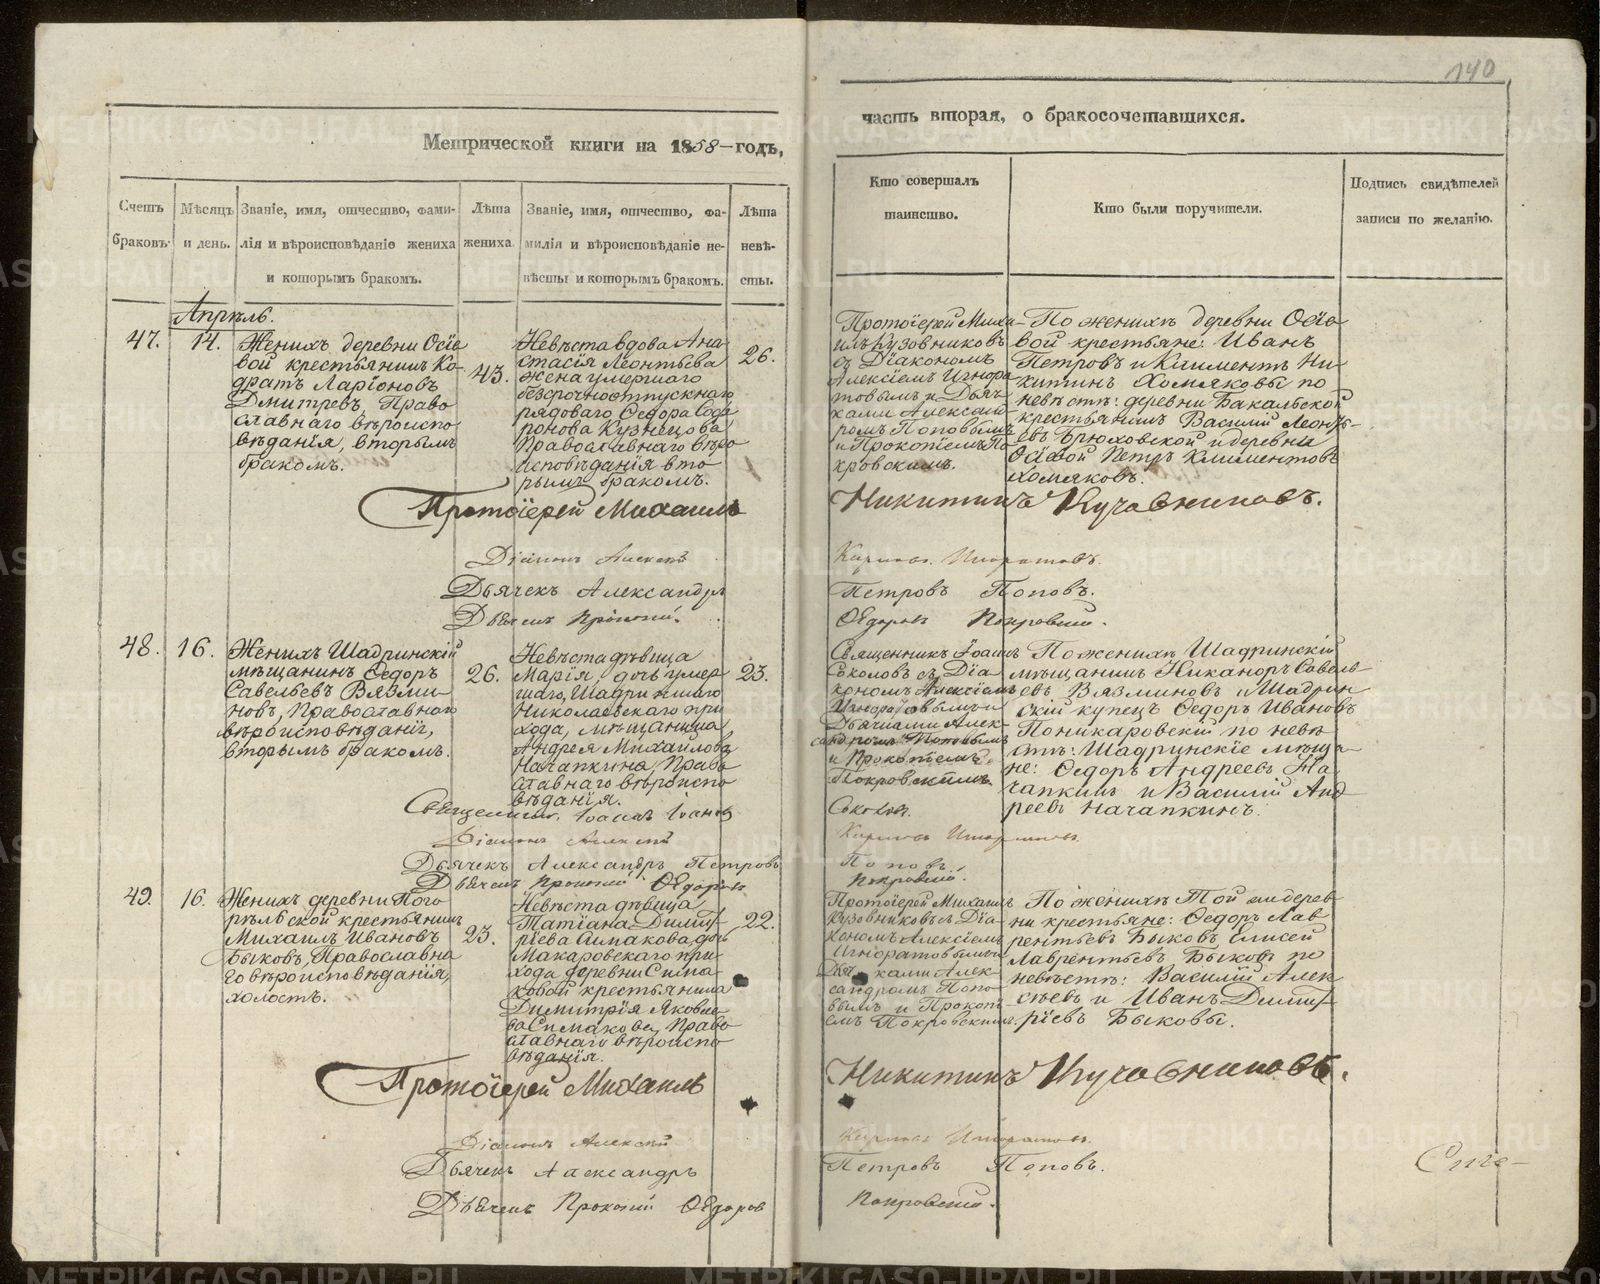 140
Метрической книги на 1858-годъ,
часть вторая, о бракосочетавшихся.
Счетъ браковъ.
Мѣсяцъ и день.
Званіе, имя, отчество, фами-
лія и вѣроисповѣданіе жениха
и которымъ бракомъ.
Лѣта жениха.
Званіе, имя, отчество, фа-
милія и вѣроисповѣданіе не-
вѣсты и которымъ бракомъ.
Лѣта невѣ-
сты.
Кто совершалъ
таинство.
Кто были поручители.
Подпись свидѣтелей
записи по желанію.
Апрѣль.
47.
14.
Женихъ деревни Осіе
вой крестьянинъ Ко-
дратъ Ларіоновъ
Дмитревъ, Право
славнаго вѣроиспо
вѣданія, вторымъ
бракомъ.
43.
Невѣста вдова Ана
стасія Леонтьева
жена умершаго
безсрочноотпускнаго
рядоваго Ѳедора Софа
ронова Кузнецова
Православнаго вѣро
исповѣданія вто
рымъ бракомъ.
26.
Протоіерей Миха-
илъ Кузовниковъ
съ Діакономъ
Алексіемъ Игнора
товымъ и Дьяч
ками Алексан
ромъ Поповымъ
и Прокопіемъ По
кровскимъ.
По женихѣ деревни Осіе
вой крестьяне: Иванъ
Петровъ и Климентъ Ни-
китинъ Хомяковы по
невѣстѣ: деревни Бакальской
крестьянинъ Василій Леонть-
евъ Брюховской и деревни
Осіевой Петръ Климентовъ
Хомяковъ.
Протоіерей Михаилъ Никитинъ Кузовниковъ.
Діаконъ Алексѣй
Дьячекъ Александръ Петровъ Поповъ.
Дьячекъ Прокопій Ѳедоровъ Покровскій.
48.
16.
Женихъ Шадринскій
мѣщанинъ Ѳедоръ
Савельевъ Вязми
новъ, Православнаго
вѣроисповѣданія,
вторымъ бракомъ.
26.
Невѣста дѣвица
Марія, дочь умер
шаго, Шадринскаго
Николаевскаго при
хода, мѣщанина
Андрея Михайлова
Начапкина, Право
славнаго вѣроиспо
вѣданія.
23.
Священникъ Іоаннъ
Соколовъ съ Діа
кономъ Алексіемъ
Игноратовымъ и
Дьячками Алек-
сандромъ Поповымъ
и Прокопіемъ
Покровскимъ.
По женихѣ Шадринскій
мѣщанинъ Никаноръ Савель-
евъ Вязминовъ и Шадрин
скій купецъ Ѳедоръ Ивановъ
Поникаровскій по невѣ
стѣ: Шадринскіе мѣща-
не: Ѳедоръ Андреевъ На
чапкинъ и Василій Анд
реевъ Начапкинъ.
Священникъ Іоаннъ Соколовъ.
Діаконъ Алексѣй
Дьячекъ Александръ Петровъ Поповъ.
Дьячекъ Прокопій Ѳедоровъ Покровскій.
49.
16.
Женихъ деревни Пого
рѣльской крестьянинъ
Михаилъ Ивановъ
Быковъ, Православна
го вѣроисповѣданія,
холостъ.
23.
Невѣста дѣвица
Татіана Димит
ріева Симакова, дочь
Макаровскаго при
хода деревни Сима
ковой крестьянина
Димитрія Яковле
ва Симакова, Право
славнаго вѣроиспо
вѣданія.
22.
Протоіерей Михаилъ
Кузовниковъ съ Діа-
кономъ Алексіемъ
Игноратовымъ и
Дьячками Алек-
сандромъ Попо-
вымъ и Прокопі-
емъ Покровскимъ.
По женихѣ Той же дерев
ни крестьяне: Ѳедоръ Лав
рентьевъ Быковъ, Елисей
Лаврентьевъ Быковъ по
невѣстѣ: Василій Алек
сѣевъ и Иванъ Димит
ріевъ Быковы.
Протоіерей Михаилъ Никитинъ Кузовниковъ.
Діаконъ Алексѣй
Дьячекъ Александръ Петровъ Поповъ.
Дьячекъ Прокопій Ѳедоровъ Покровскій.
METRIKI.GASO-URAL.RU